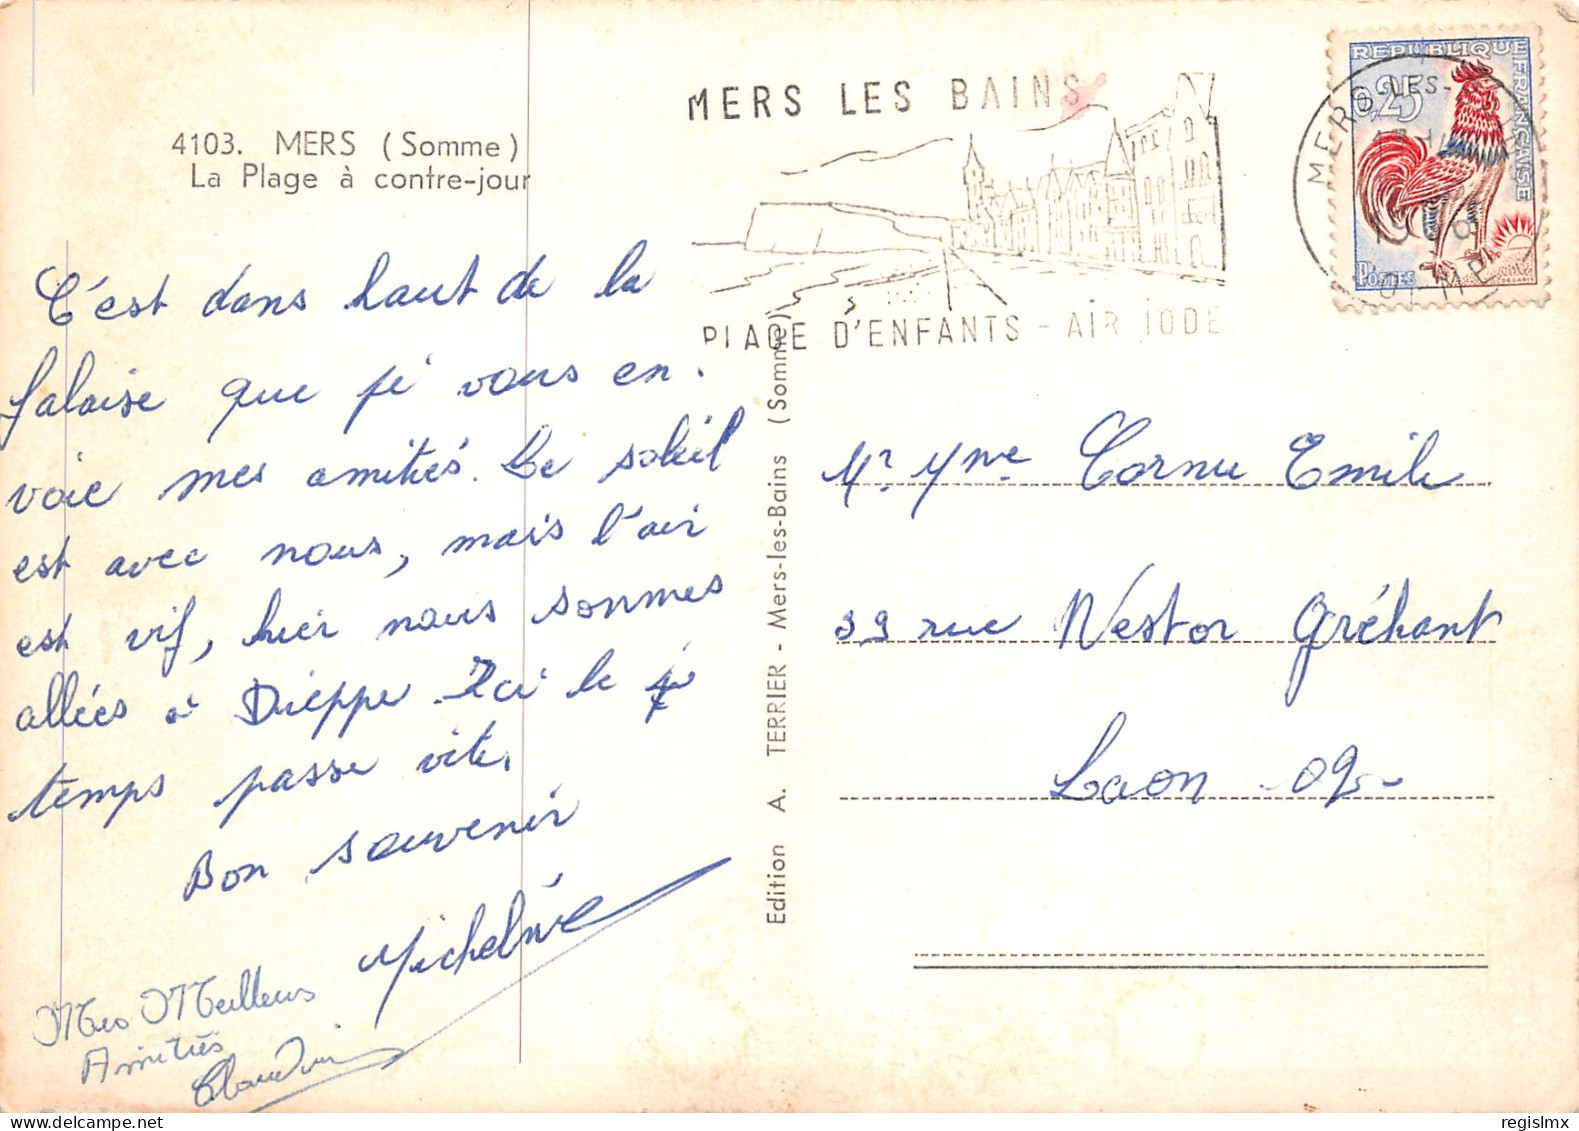 4103. MERS (Somme)
La Plage à contre-jour
C'est dans haut de la
falaise que je vous en.
voie mes amitiés. Le soleil
est avec nous, mais l'air
est vif, hier nous sommes
allées à Dieppe. Ici le
temps passe vite.
Bon souvenir
Micheline
Mes Meilleurs
Amitiés
Claudine
MERS LES BAINS
PLAGE D'ENFANTS - AIR IODE
Edition A. TERRIER - Mers-les-Bains (Somme)
REPUBLIQUE FRANÇAISE
0,25
POSTES
MERS-LES-
SOMME
Mr. Mme Cornu Emile
39 rue Nestor Gréhant
Laon 02
regislmx